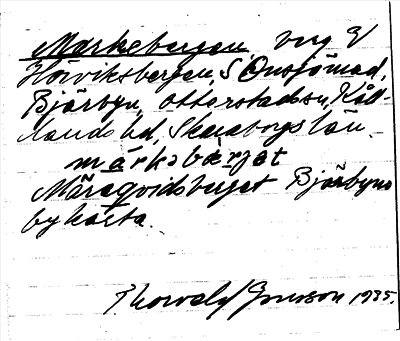 Märkebergen, berg V
Höviksbergen, S Onsjömad,
Bjärbyn, Otterstads sn, Kål-
lands hd, Skaraborgs län.
märkəbærjət
Märaqvidsberget Bjärbyns
bykarta.
Thorwald Jonsson 1935.